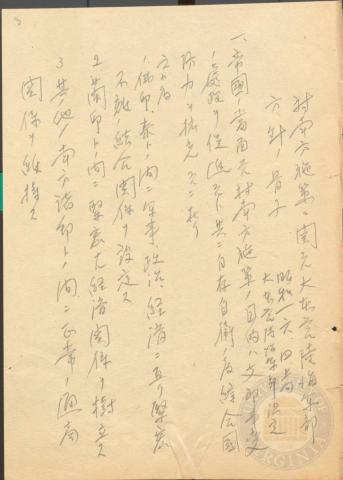 対南方施策ニ関スル大本営陸海軍部
方針ノ骨子
昭和一六、四
大本営陸海軍部決定
一、帝国ノ当面スル対南方施策ノ目的ハ支那事変
ノ処理ヲ促進スルト共ニ自存自衛ノ為綜合国
防力ヲ拡充スルニ在リ
之カ為
1 仏印、泰トノ間ニ軍事、政治、経済ニ亘リ緊密
不離ノ結合関係ヲ設定ス
2 蘭印トノ間ニ緊密ナル経済関係ヲ樹立ス
3 其ノ他ノ南方諸邦トノ間ニ正常ノ通商
関係ヲ維持ス
3
VIRGINIA